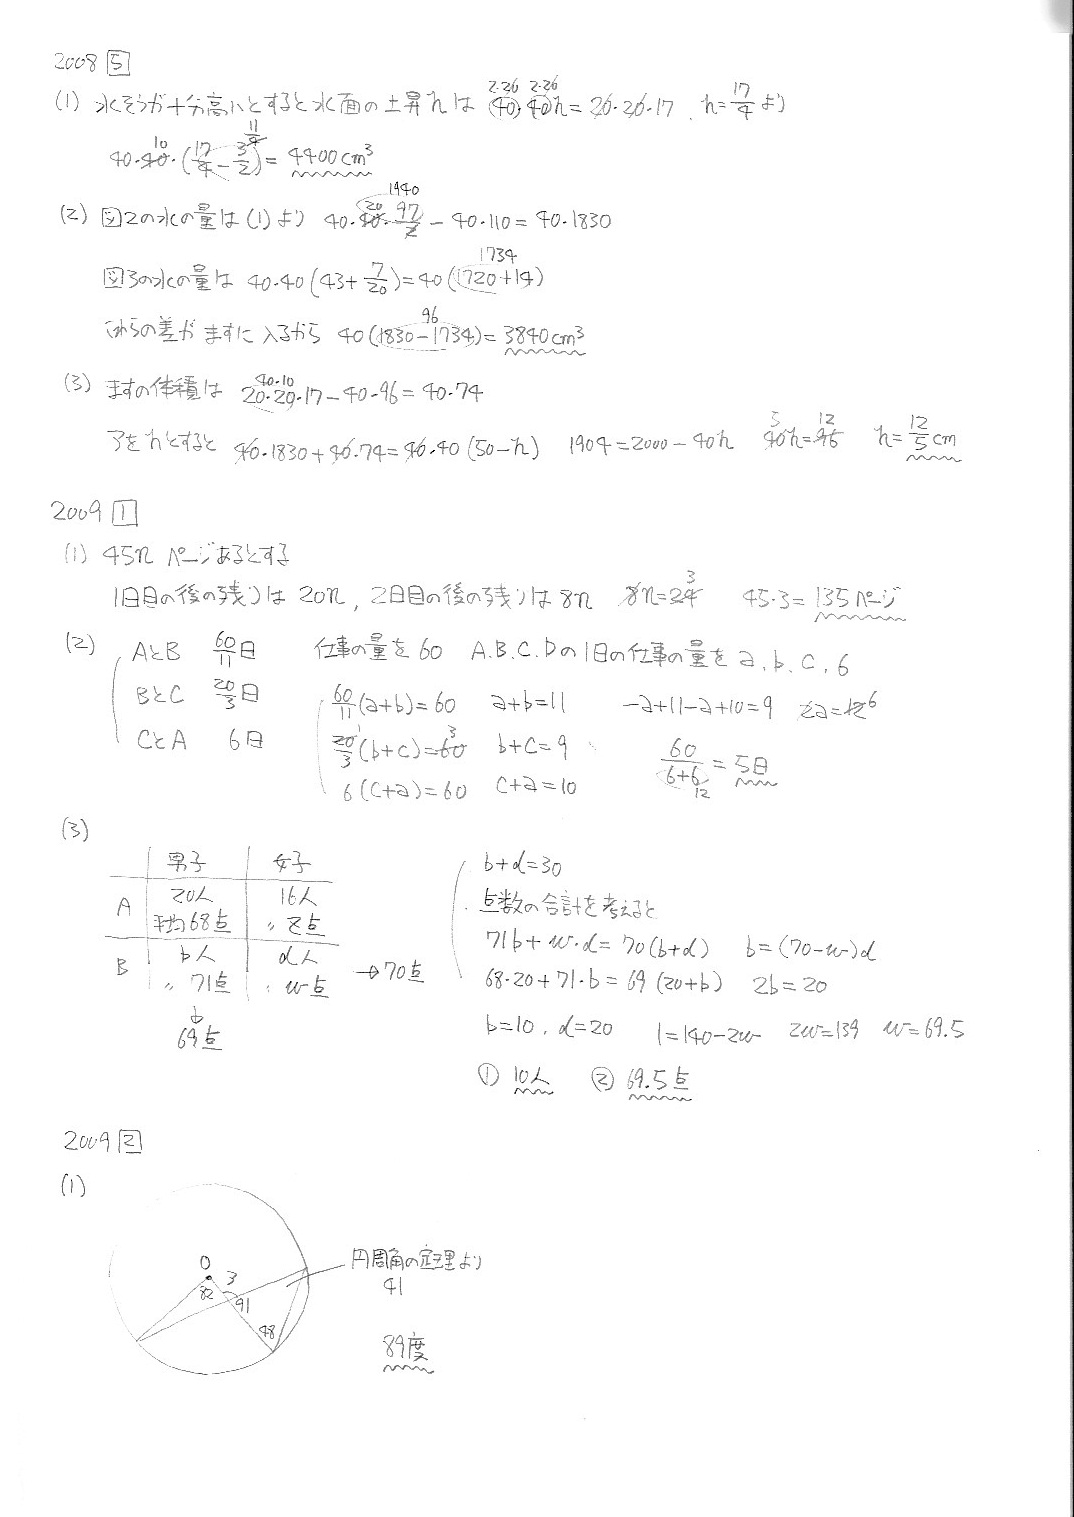 2008 5
(1) 水そうが十分高いとすると水面の上昇hは 40·40h=20·20·17 , h=17/4 より
40·40·(17/4-3/2)=4400cm³
(2) 図2の水の量は(1)より 40·40·97/2-40·110=40·1830
図3の水の量は 40·40(43+7/20)=40(1720+14)
これらの差がますに入るから 40(1830-1734)=3840cm³
(3) ますの体積は 20·20·17-40·96=40·74
アをhとすると 40·1830+40·74=40·40(50-h) 1904=2000-40h 40h=96 h=12/5cm
2009 1
(1) 45n ページあるとする
1日目の後の残りは 20n , 2日目の後の残りは 8n 8n=24 45·3=135ページ
(2) AとB 60/11日 仕事の量を60 A.B.C.Dの1日の仕事の量をa.b.c.6
BとC 20/3日 60/11(a+b)=60 a+b=11 -a+11-a+10=9 2a=12
20/3(b+c)=60 b+c=9 60/(6+6)=5日
CとA 6日 6(c+a)=60 c+a=10
(3)
男子 女子 b+d=30
A 20人 平均68点 16人 〃 z点 点数の合計を考えると
71b+w·d=70(b+d) b=(70-w)d
B b人 〃 71点 d人 〃 w点 →70点 68·20+71·b=69(20+b) 2b=20
69点 b=10 , d=20 1=140-2w 2w=139 w=69.5
① 10人 ② 69.5点
2009 2
(1)
O 3 82 91 48
円周角の定理より
41
89度